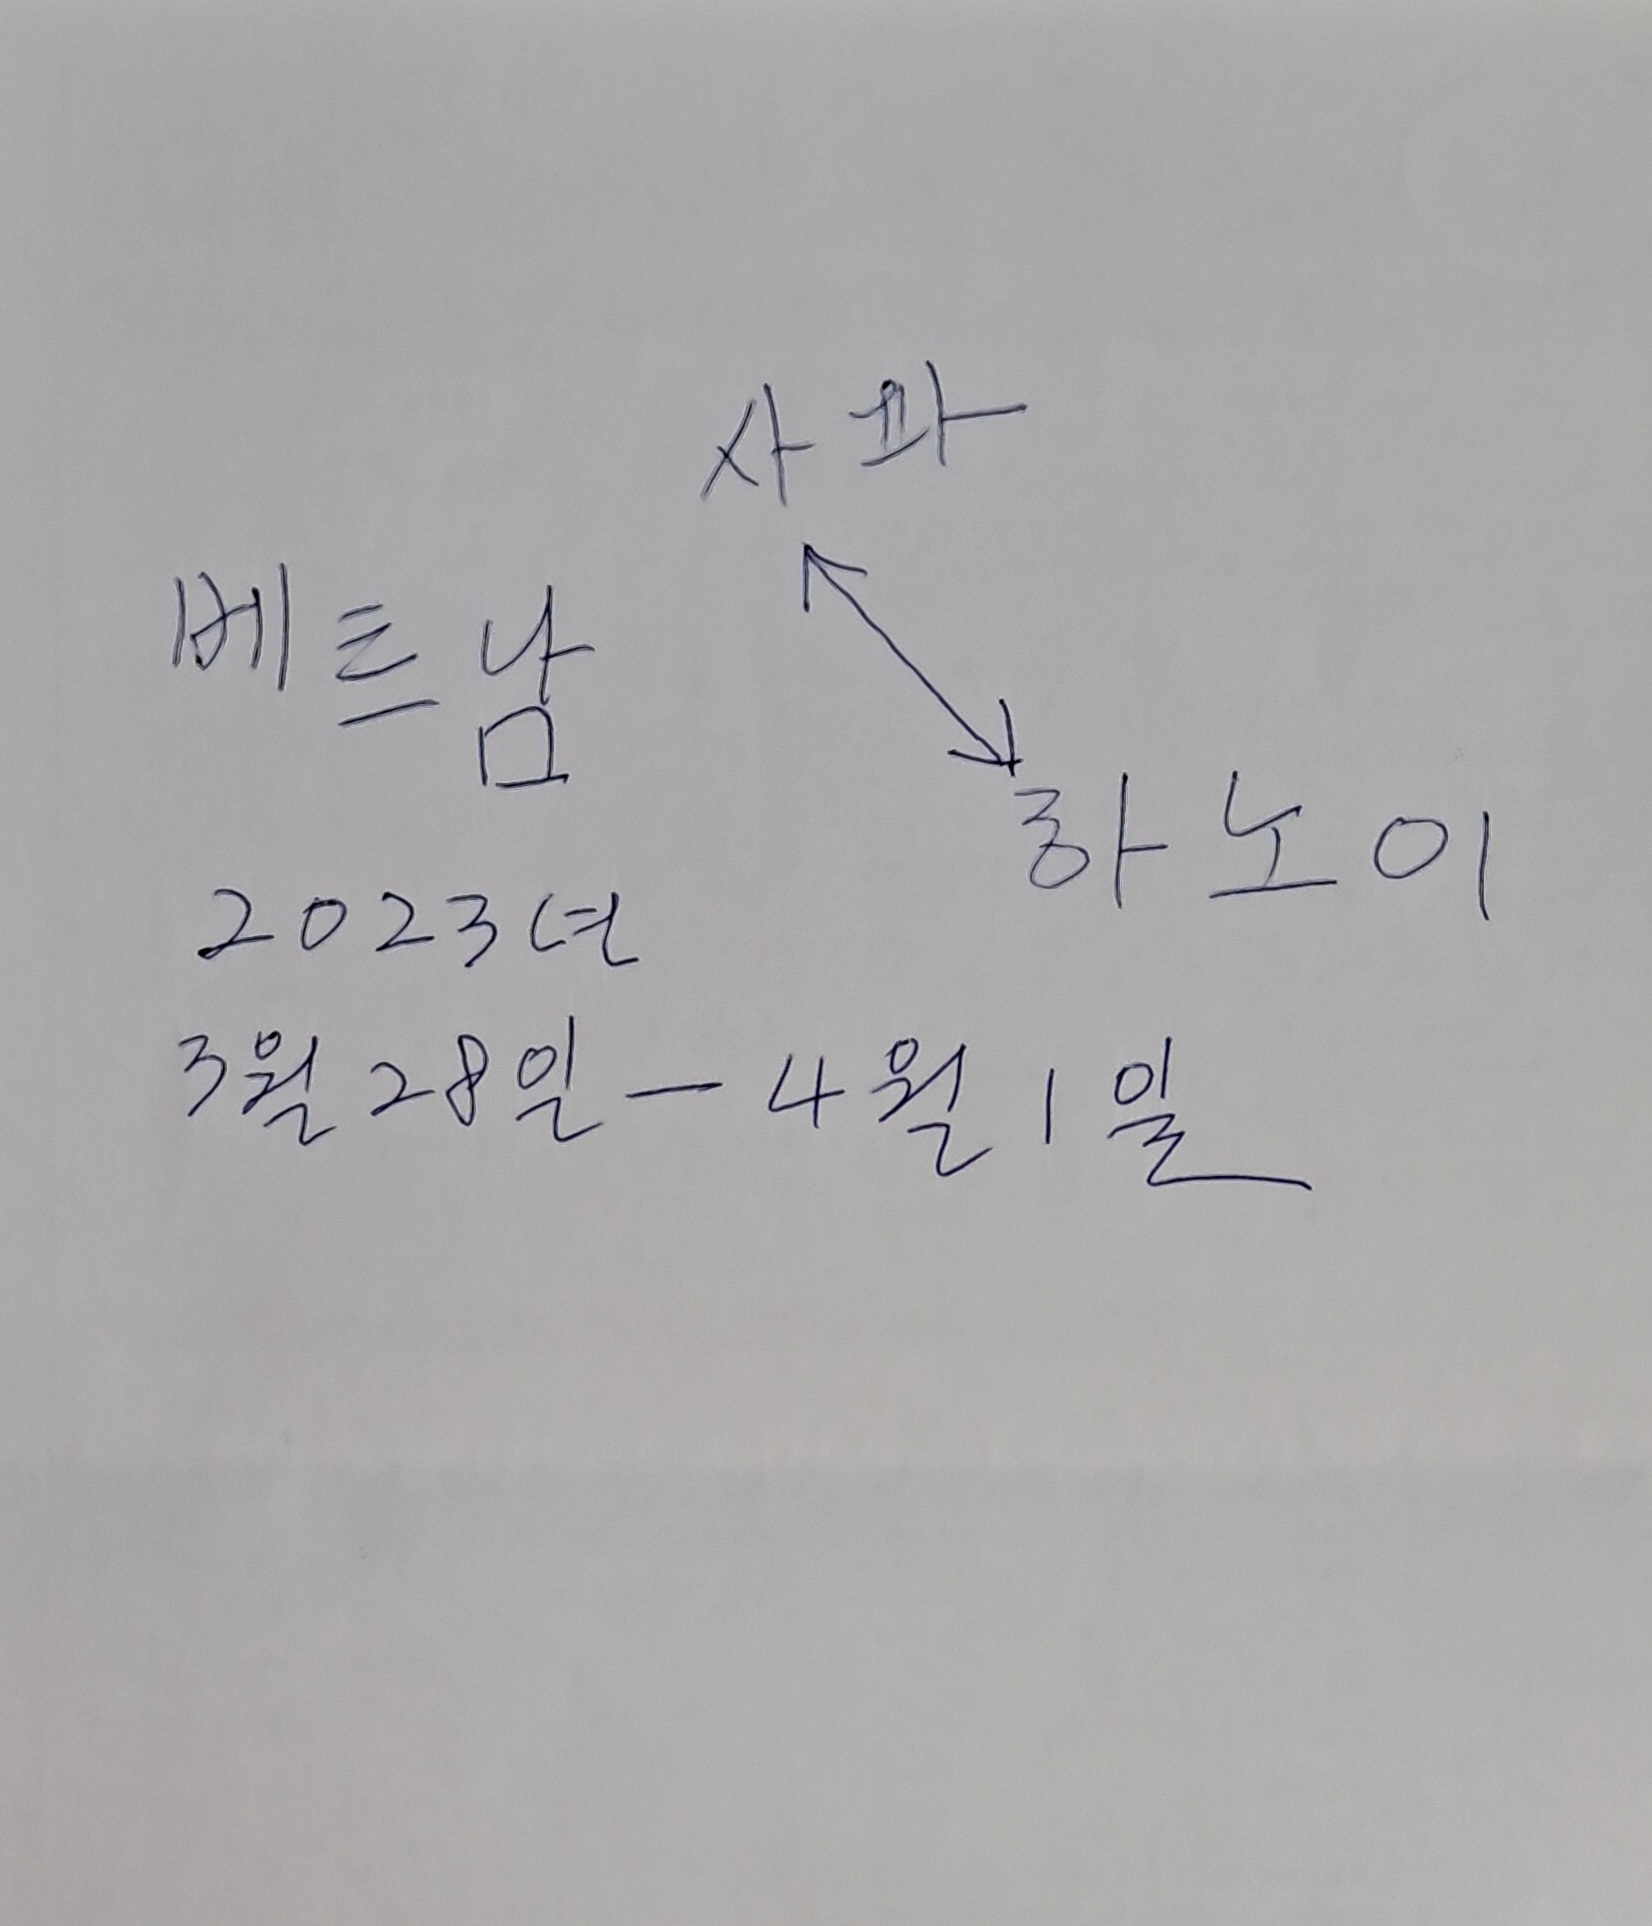 사파
베트남
하노이
2023년
3월 28일 - 4월 1일